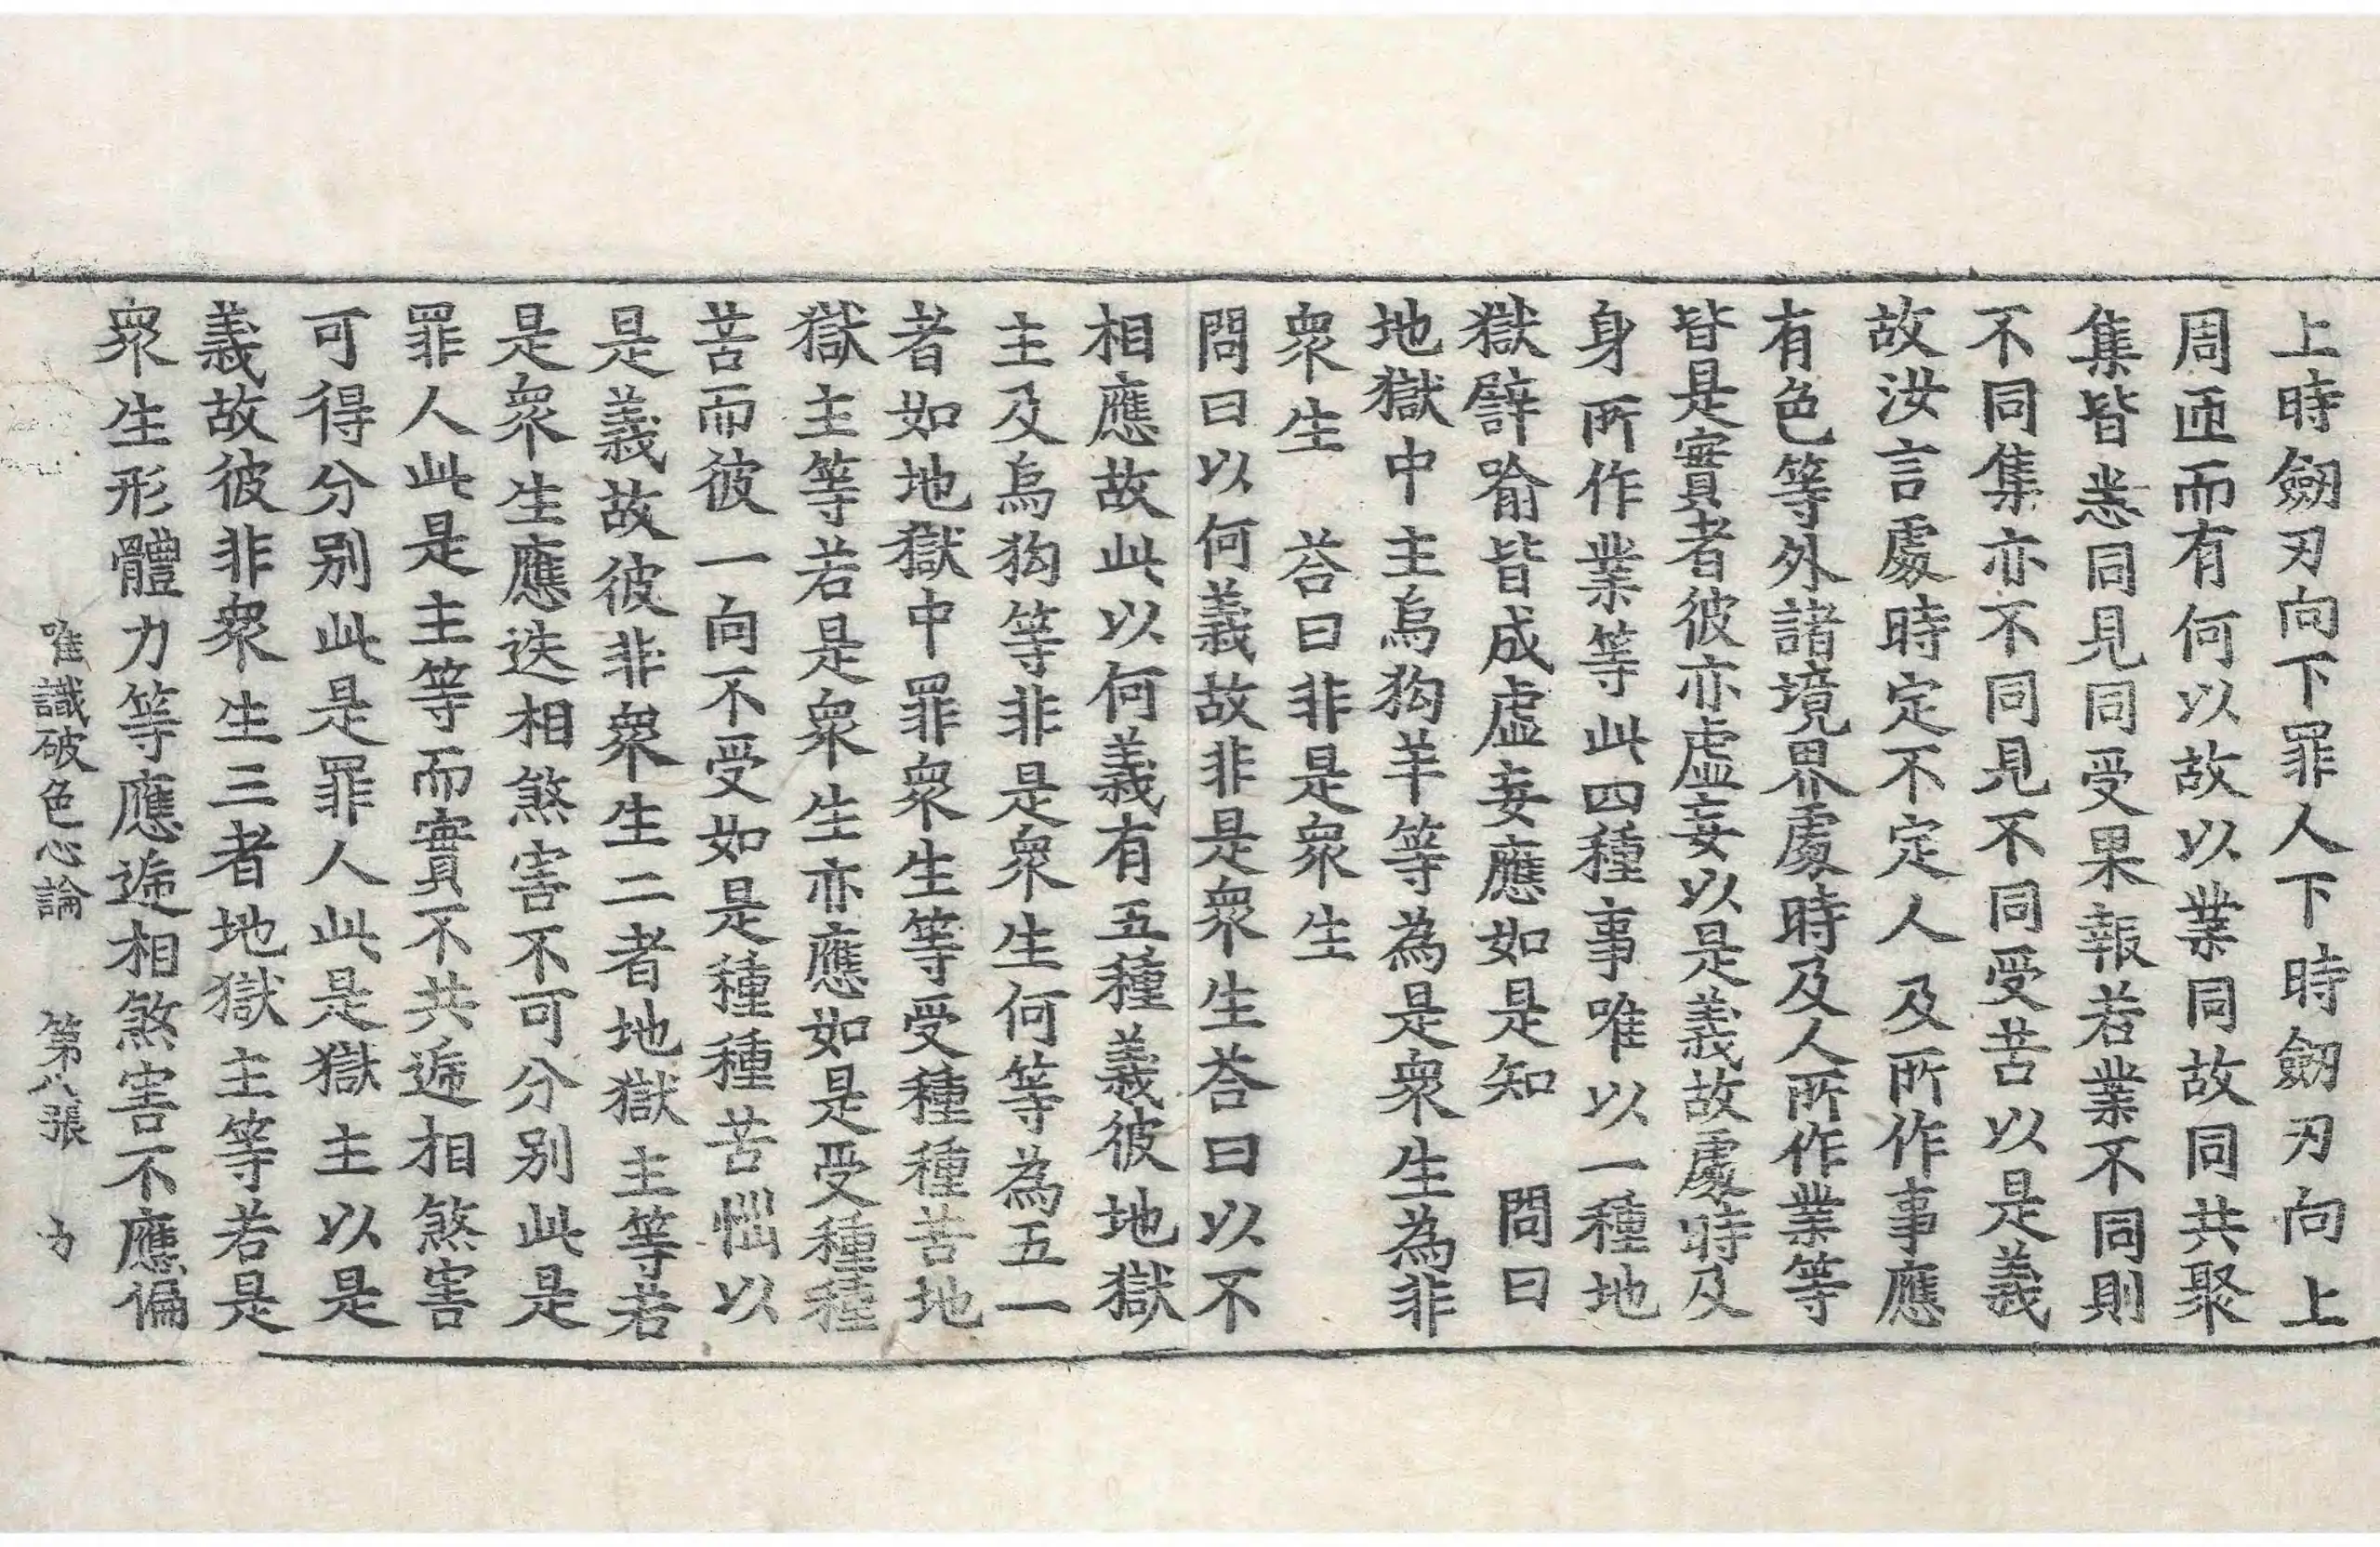 上時劒刃向下罪人下時劒刃向上
周匝而有何以故以業同故同共聚
集皆悉同見同受果報若業不同則
不同集亦不同見不同受苦以是義
故汝言處時定不定人及所作事應
有色等外諸境界處時及人所作業等
皆是實者彼亦虛妄以是義故處時及
身所作業等此四種事唯以一種地
獄譬喻皆成虛妄應如是知　問曰
地獄中主烏狗羊等為是衆生為非
衆生　荅曰非是衆生
問曰以何義故非是衆生荅曰以不
相應故此以何義有五種義彼地獄
主及烏狗等非是衆生何等為五一
者如地獄中罪衆生等受種種苦地
獄主等若是衆生亦應如是受種種
苦而彼一向不受如是種種苦惱以
是義故彼非衆生二者地獄主等若
是衆生應迭相煞害不可分別此是
罪人此是主等而實不共遞相煞害
可得分別此是罪人此是獄主以是
義故彼非衆生三者地獄主等若是
衆生形體力等應遞相煞害不應偏
唯識破色心論　第八張　力